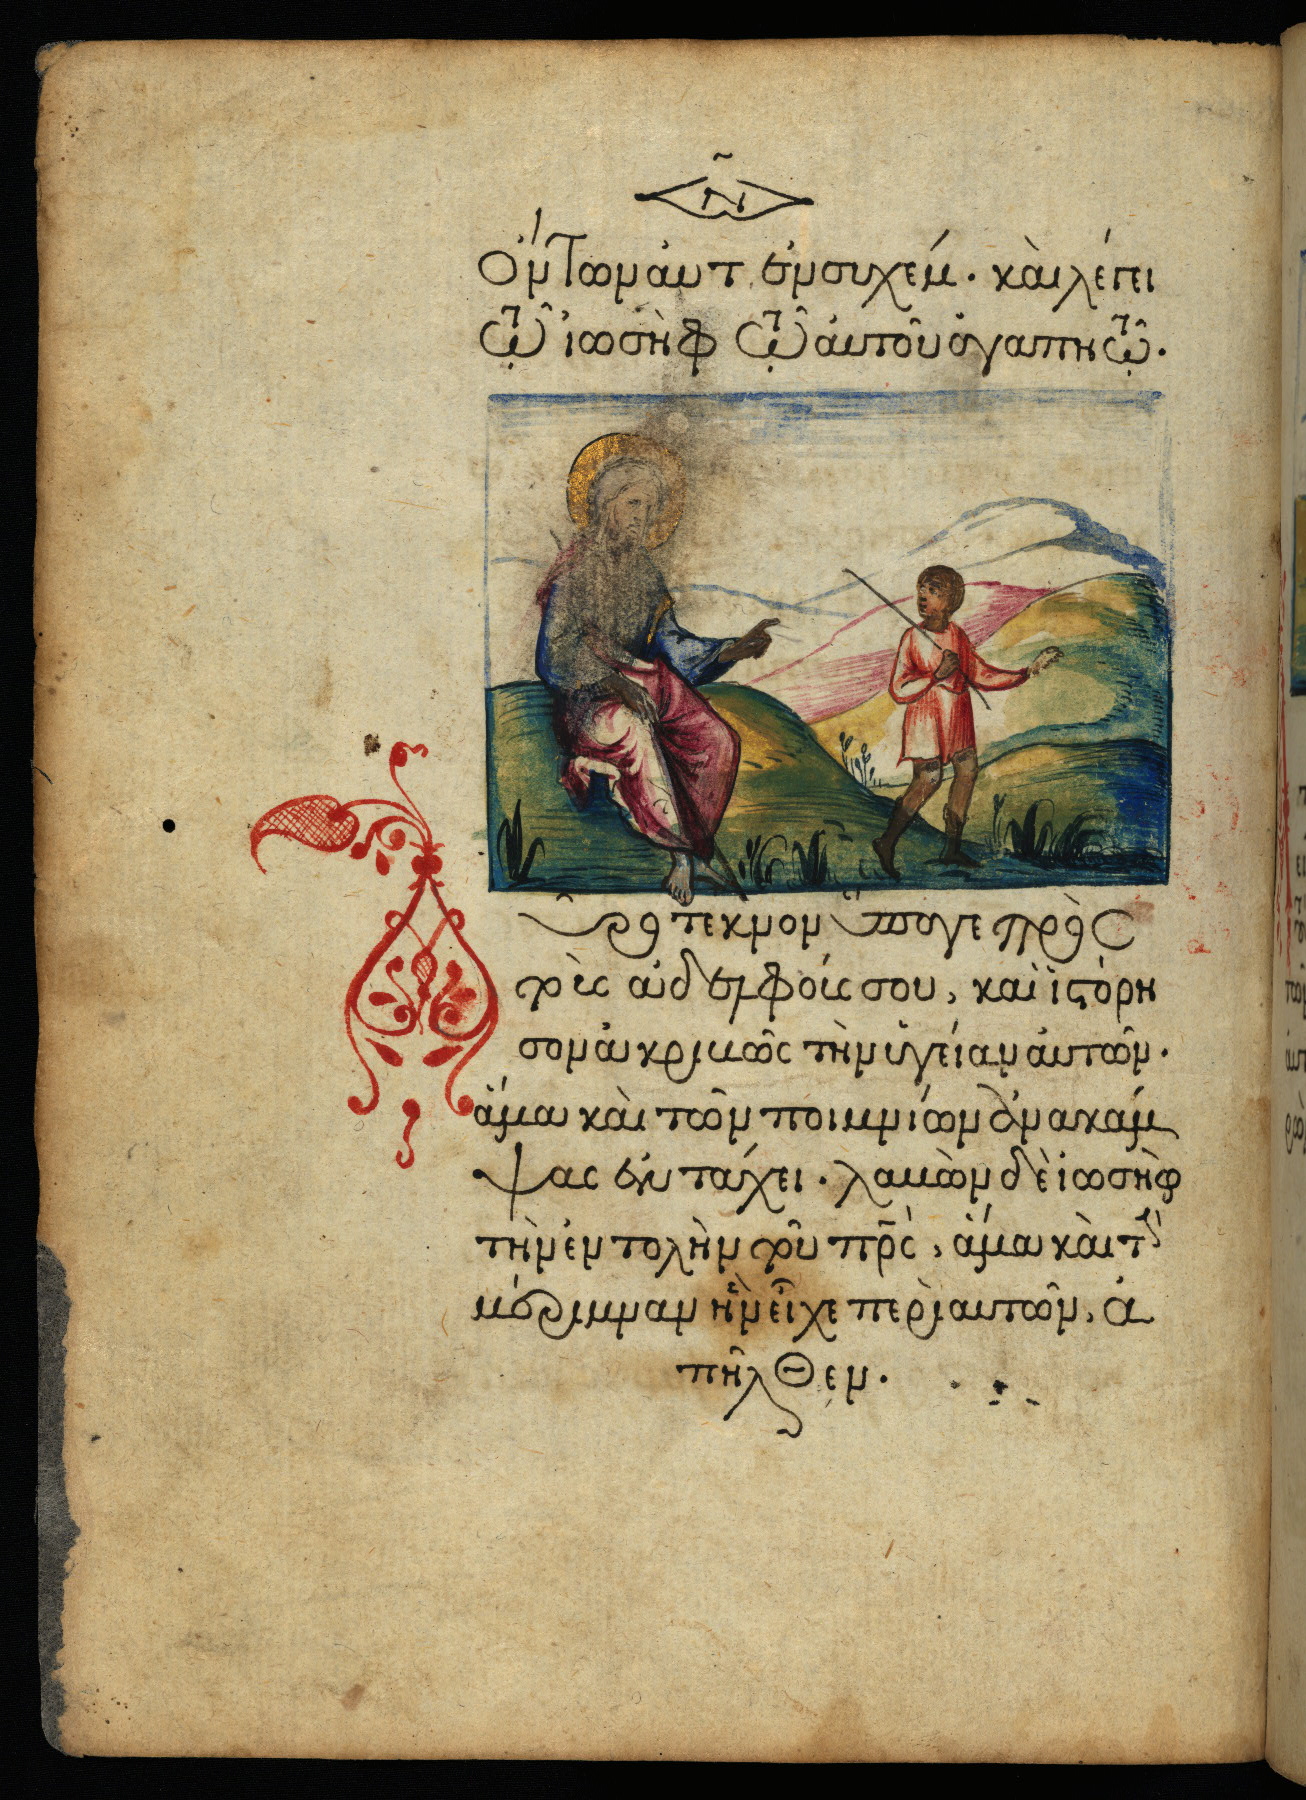 ὄντων αὐτ ἐν συχέμ. καὶ λέγει
τῷ ἰωσὴφ τῷ αὐτοῦ ἀγαπητῷ.
τέκνον ὕπαγε πρὸς
τοὺς ἀδελφούς σου, καὶ ἱστόρη
σον ἀκριβῶς τὴν ὑγείαν αὐτῶν.
ἅμα καὶ τῶν ποιμνίων ἀνακάμ
ψας ἐν τάχει. λαβὼν δὲ ἰωσὴφ
τὴν ἐντολὴν τοῦ πρς, ἅμα καὶ τ
μέριμναν ἣν εἶχε περὶ αὐτῶν, ἀ
πῆλθεν.